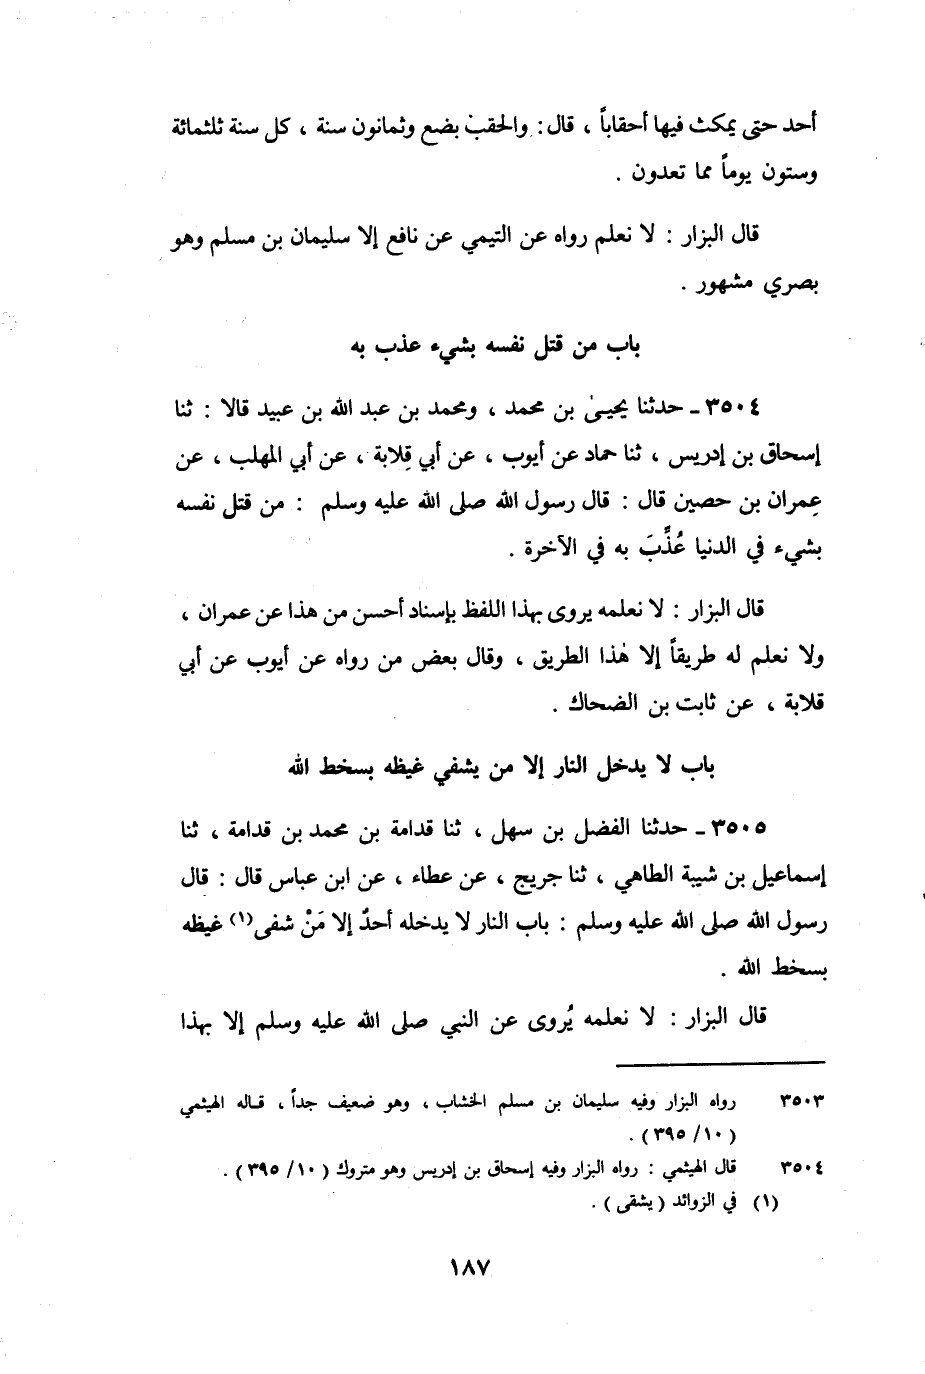 أحد حتى يمكث فيها أحقاباً ، قال : والحقب بضع وثمانون سنة ، كل سنة ثلثمائة
وستون يوماً مما تعدون .
قال البزار : لا نعلم رواه عن التيمي عن نافع إلا سليمان بن مسلم وهو
بصري مشهور .
باب من قتل نفسه بشيء عذب به
٣٥٠٤ ـ حدثنا يحيىٰ بن محمد ، ومحمد بن عبد الله بن عبيد قالا : ثنا
إسحاق بن إدريس ، ثنا حماد عن أيوب ، عن أبي قِلابة ، عن أبي المهلب ، عن
عِمران بن حصين قال : قال رسول الله صلى الله عليه وسلم : من قتل نفسه
بشيء في الدنيا عُذِّبَ به في الآخرة .
قال البزار : لا نعلمه يروى بهذا اللفظ بإسناد أحسن من هذا عن عمران ،
ولا نعلم له طريقاً إلا هٰذا الطريق ، وقال بعض من رواه عن أيوب عن أبي
قلابة ، عن ثابت بن الضحاك .
باب لا يدخل النار إلا من يشفي غيظه بسخط الله
٣٥٠٥ ـ حدثنا الفضل بن سهل ، ثنا قدامة بن محمد بن قدامة ، ثنا
إسماعيل بن شيبة الطاهي ، ثنا جريج ، عن عطاء ، عن ابن عباس قال : قال
رسول الله صلى الله عليه وسلم : باب النار لا يدخله أحدٌ إلا مَنْ شفى(١) غيظه
بسخط الله .
قال البزار : لا نعلمه يُروى عن النبي صلى الله عليه وسلم إلا بهذا
٣٥٠٣ رواه البزار وفيه سليمان بن مسلم الخشاب ، وهو ضعيف جداً ، قاله الهيثمي
( ١٠/ ٣٩٥ ) .
٣٥٠٤ قال الهيثمي : رواه البزار وفيه إسحاق بن إدريس وهو متروك ( ١٠/ ٣٩٥ ) .
(١) في الزوائد ( يشقى ) .
١٨٧